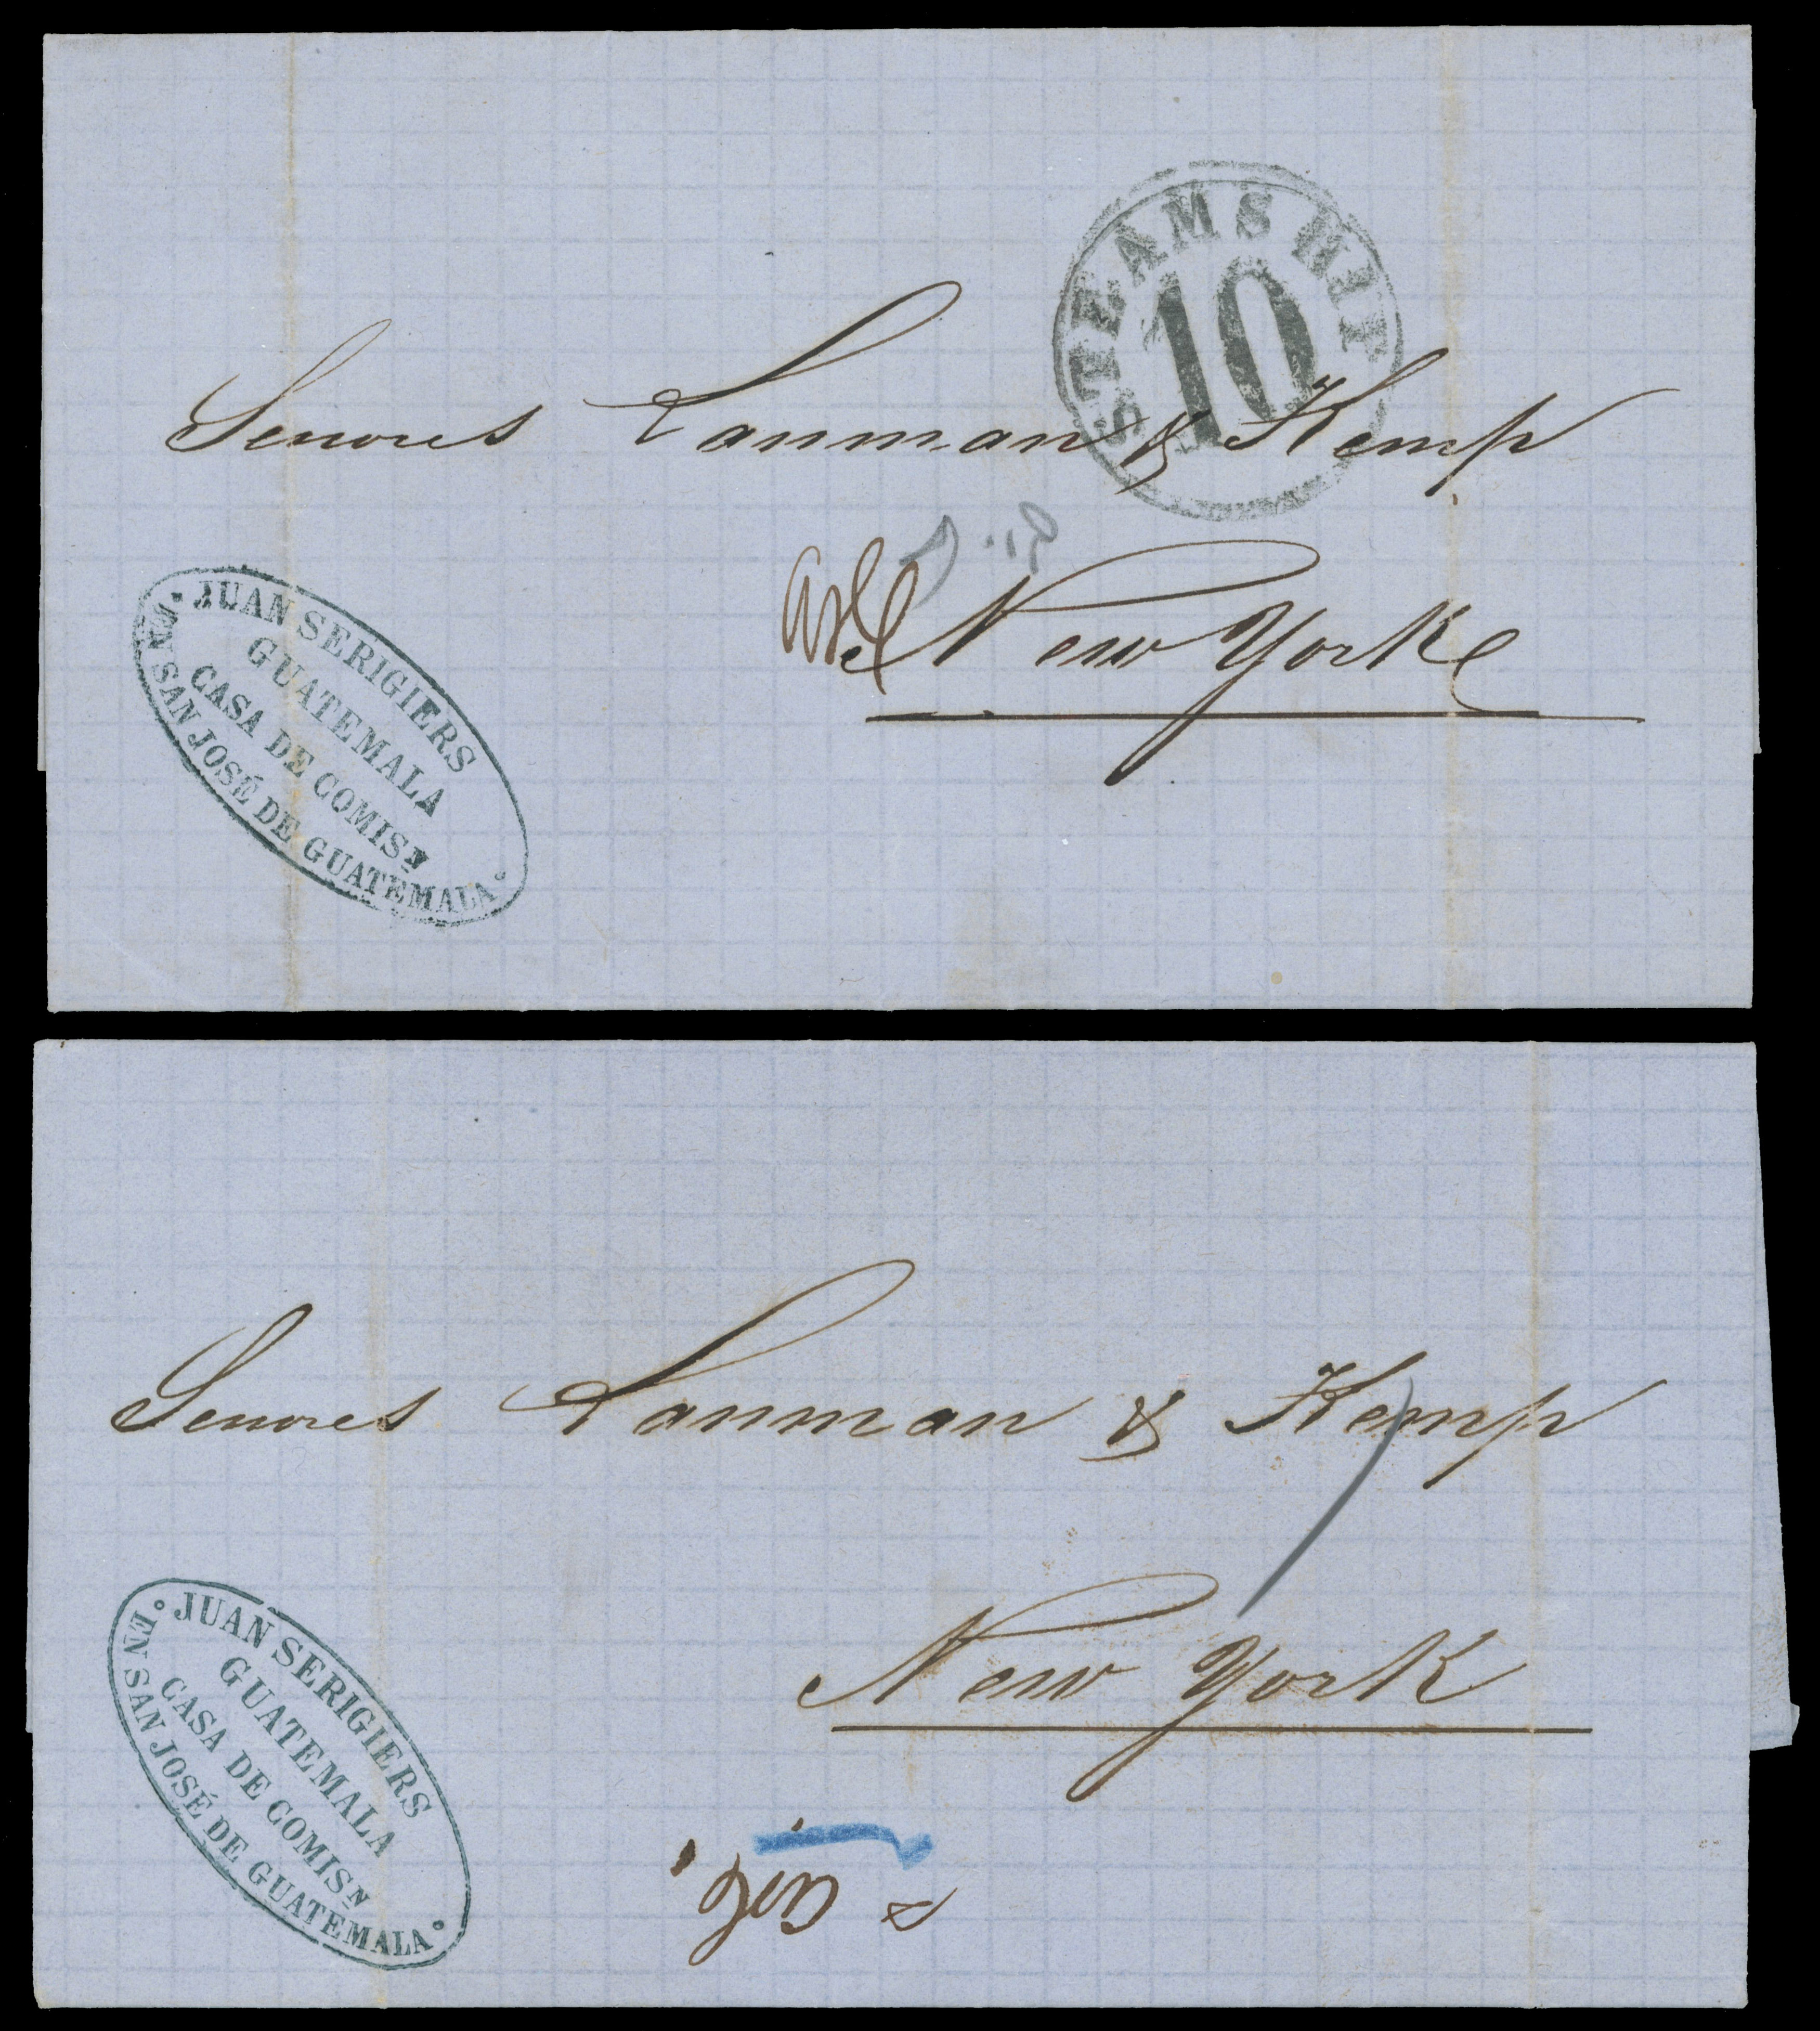 STEAMSHIP
10
Senores Lanman & Kemp
New York
JUAN SERIGIERS
GUATEMALA
CASA DE COMISN
EN SAN JOSÉ DE GUATEMALA
Senores Lanman & Kemp
New York
JUAN SERIGIERS
GUATEMALA
CASA DE COMISN
EN SAN JOSÉ DE GUATEMALA